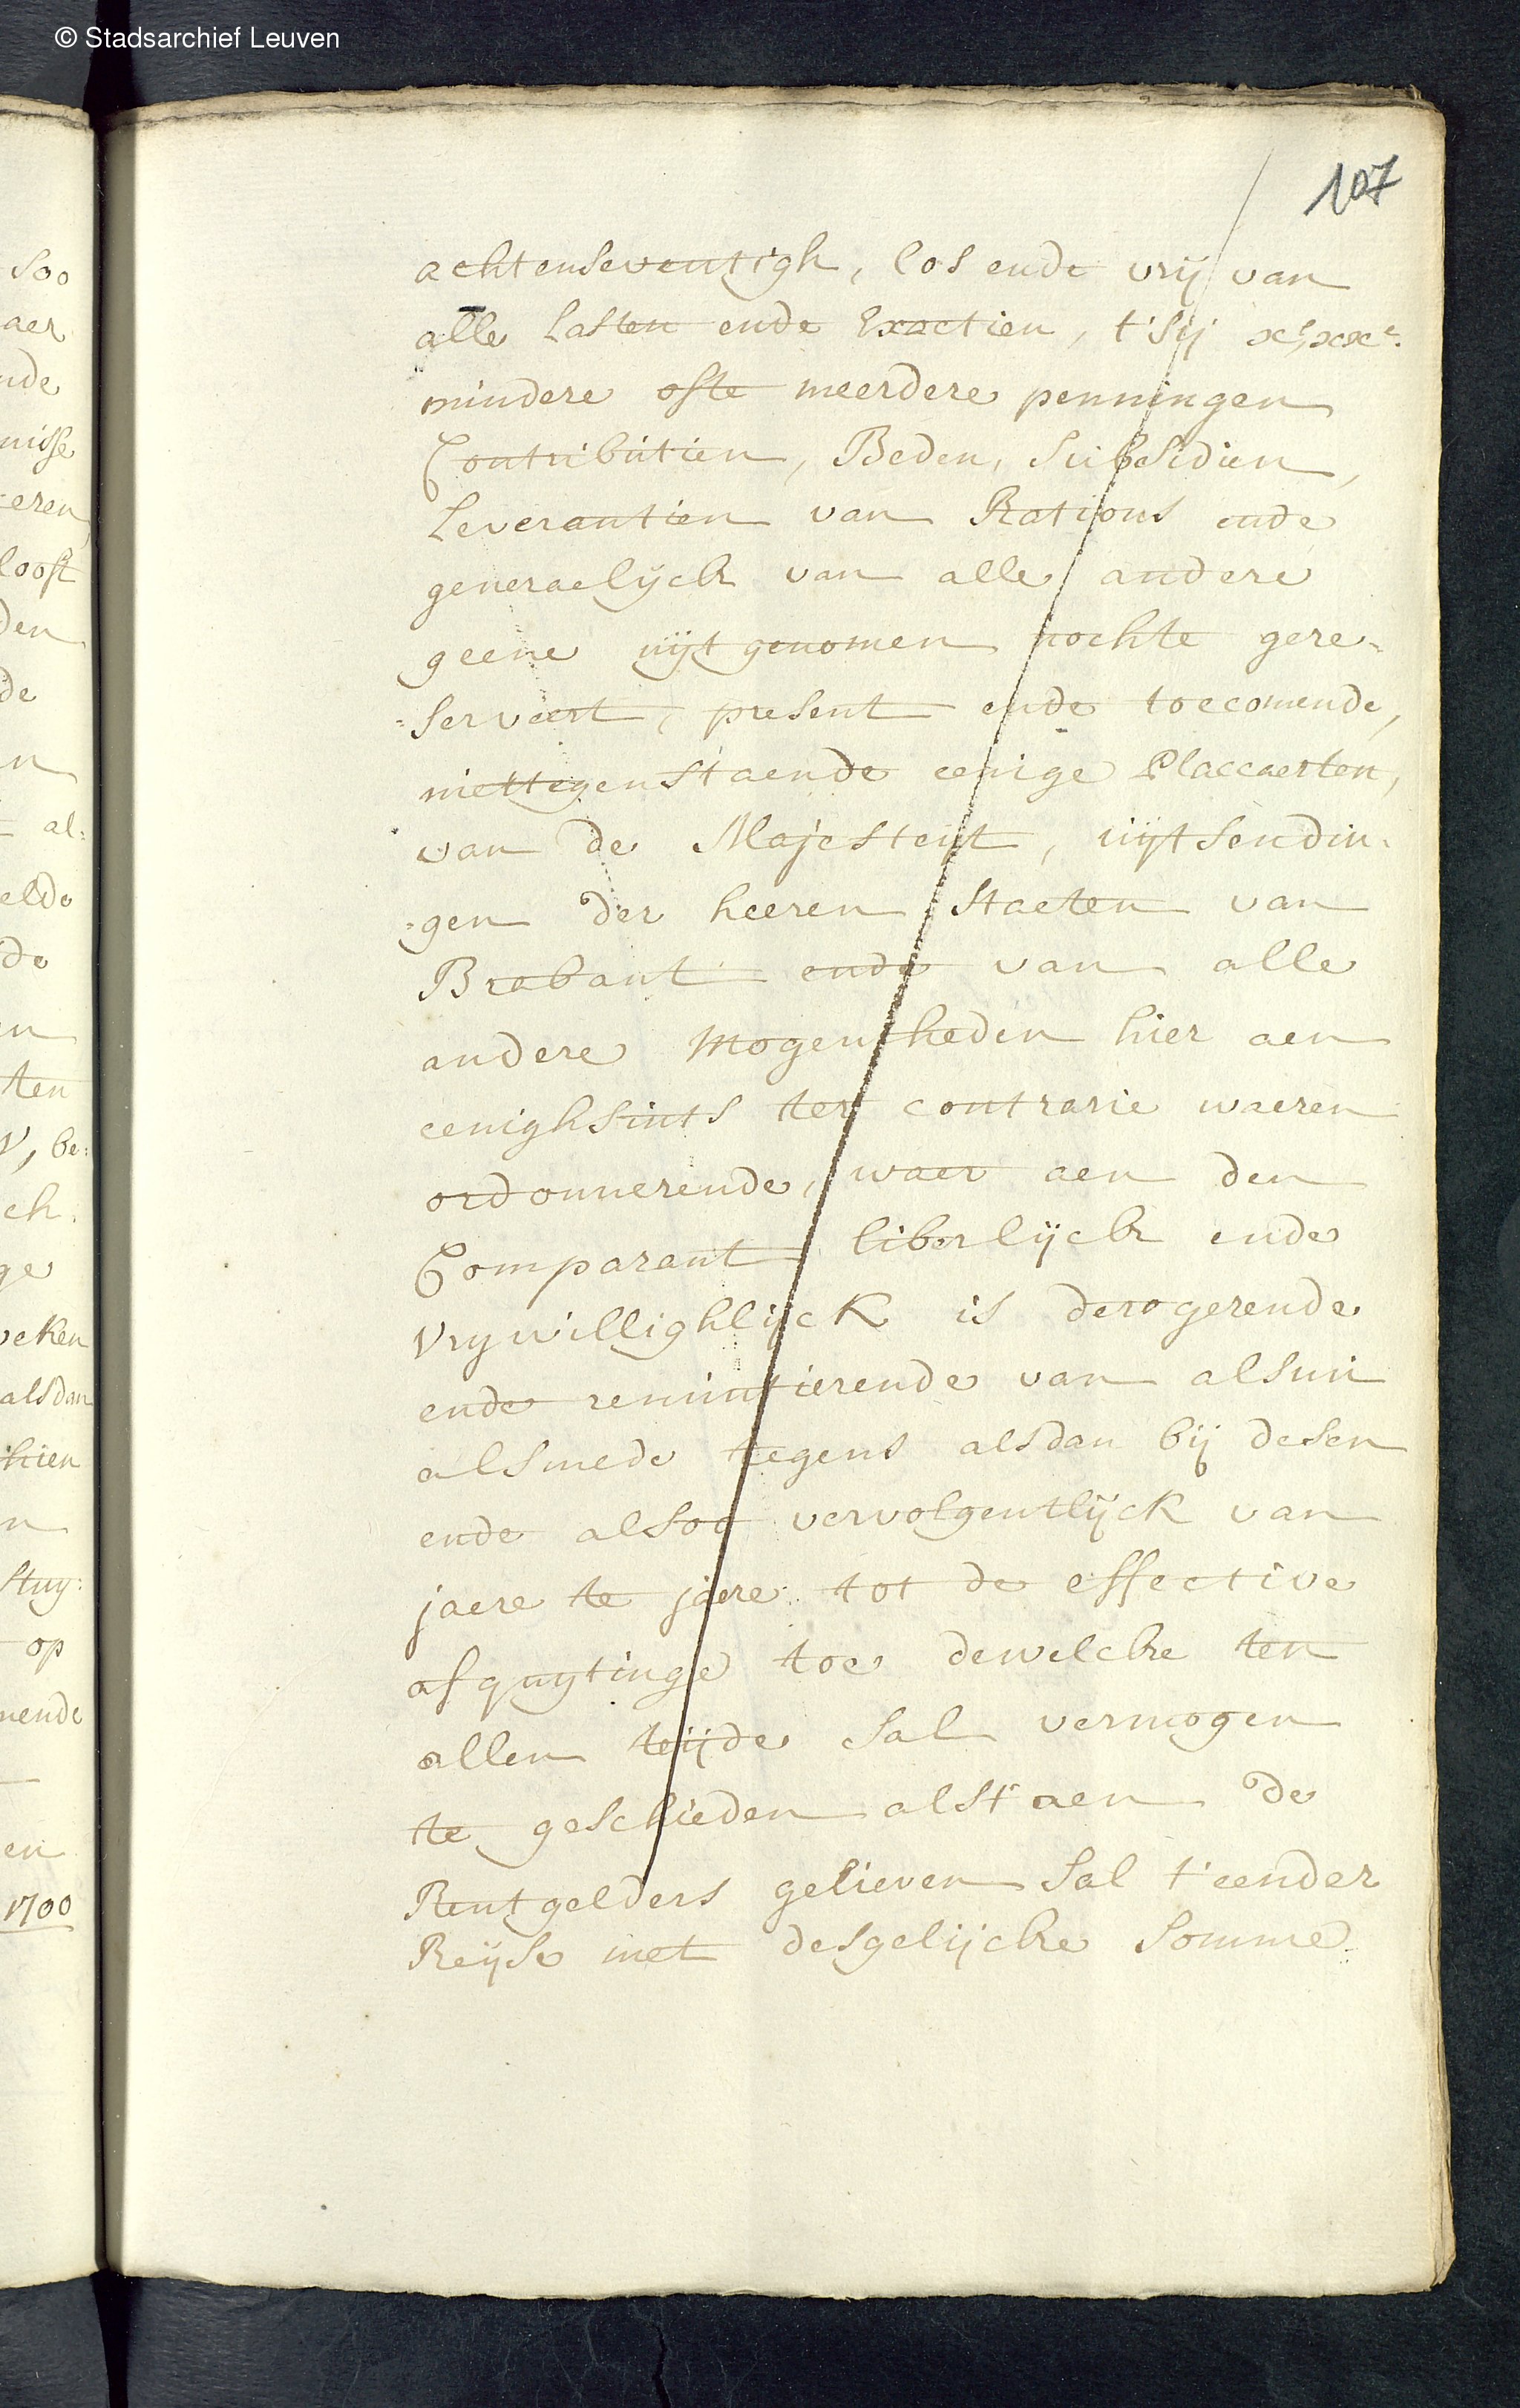 © Stadsarchief Leuven
107
achtenseventigh, los ende vrij van
alle lasten ende Exactien, t'sij xe, xxe.
mindere ofte meerdere penningen
Contributien, Beden, subsidien,
Leverantien van Rations ende
generaelijck van alle andere
geene uijtgenomen nochte gere-
-serveert, present ende toecomende,
niettegenstaende eenige Placcaerten,
van de Majesteijt, uijtsendin-
-gen der heeren Staeten van
Brabant ende van alle
andere mogentheden hier aen
eenighsints ter contrarie waeren
ordonnerende, waer aen den
Comparant liberlijck ende
vrywillighlijck is derogerende
ende renuntierende van alsnu
alsmede tegens alsdan bij desen
ende alsoo vervolgentlijck van
jaere te jaere tot de effective
afquytinge toe dewelcke ten
allen teijde sal vermogen
te geschieden alst aen de
Rentgelders gelieven sal t'eender
Reijse met desgelijcke somme
soo
aer
nde
nisse
eren
looft
den
de
n
al:
elde
de
en
ten
be:
ch.
ge
veken
alsdan
hien
n
stuy:
op
nende
en
1700